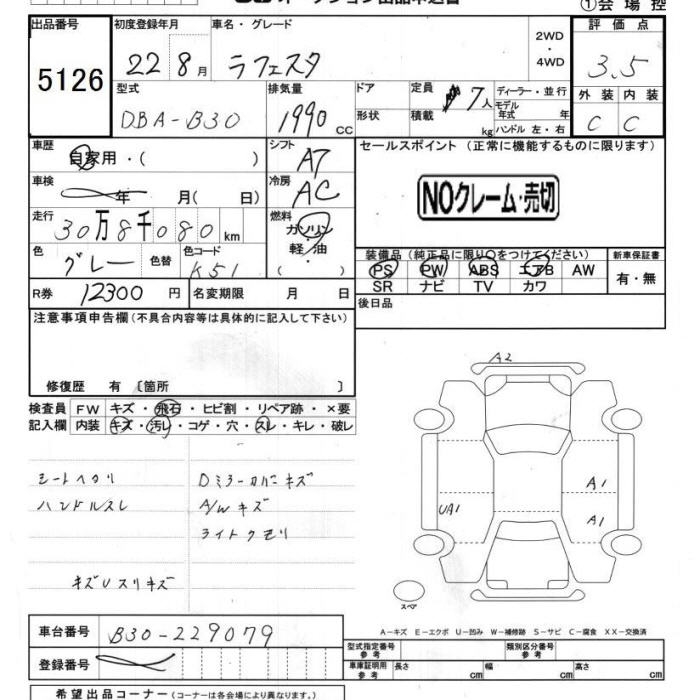 ①会場控
出品番号 初度登録年月 車名・グレード 2WD・4WD 評価点
5126 22 8月 ラフェスタ 3.5
型式 排気量 ドア 定員 7人 ディーラー・並行 外装 内装
DBA-B30 1990 CC 形状 積載 kg モデル年式 年 ハンドル 左・右 C C
車歴 自家用・( ) シフト A7 セールスポイント(正常に機能するものに限ります)
車検 年 月( 日) 冷房 AC NOクレーム・売切
走行 30万8千080 km 燃料 ガソリン 軽・油 ( )
色 グレー 色替 色コード K51
装備品(純正品に限り○をつけてください) 新車保証書
PS PW ABS エアB AW 有・無
SR ナビ TV カワ
R券 12300円 名変期限 月 日 後日品
注意事項申告欄(不具合内容等は具体的に記入して下さい)
修復歴 有 〔箇所 〕
検査員 FW キズ・飛石・ヒビ割・リペア跡・×要
記入欄 内装 キズ・汚レ・コゲ・穴・スレ・キレ・破レ
A2
シートヘタリ Dミラーカバーキズ
ハンドルスレ A/Wキズ
ライトクモリ
キズUスリキズ
UA1 A1
A1
スペア
A-キズ E-エクボ U-凹み W-補修跡 S-サビ C-腐食 XX-交換済
車台番号 B30-229079
登録番号
型式指定番号 参考 類別区分番号 参考
車庫証明用 参考 長さ cm 幅 cm 高さ cm
希望出品コーナー(コーナーは各会場により異なります。)